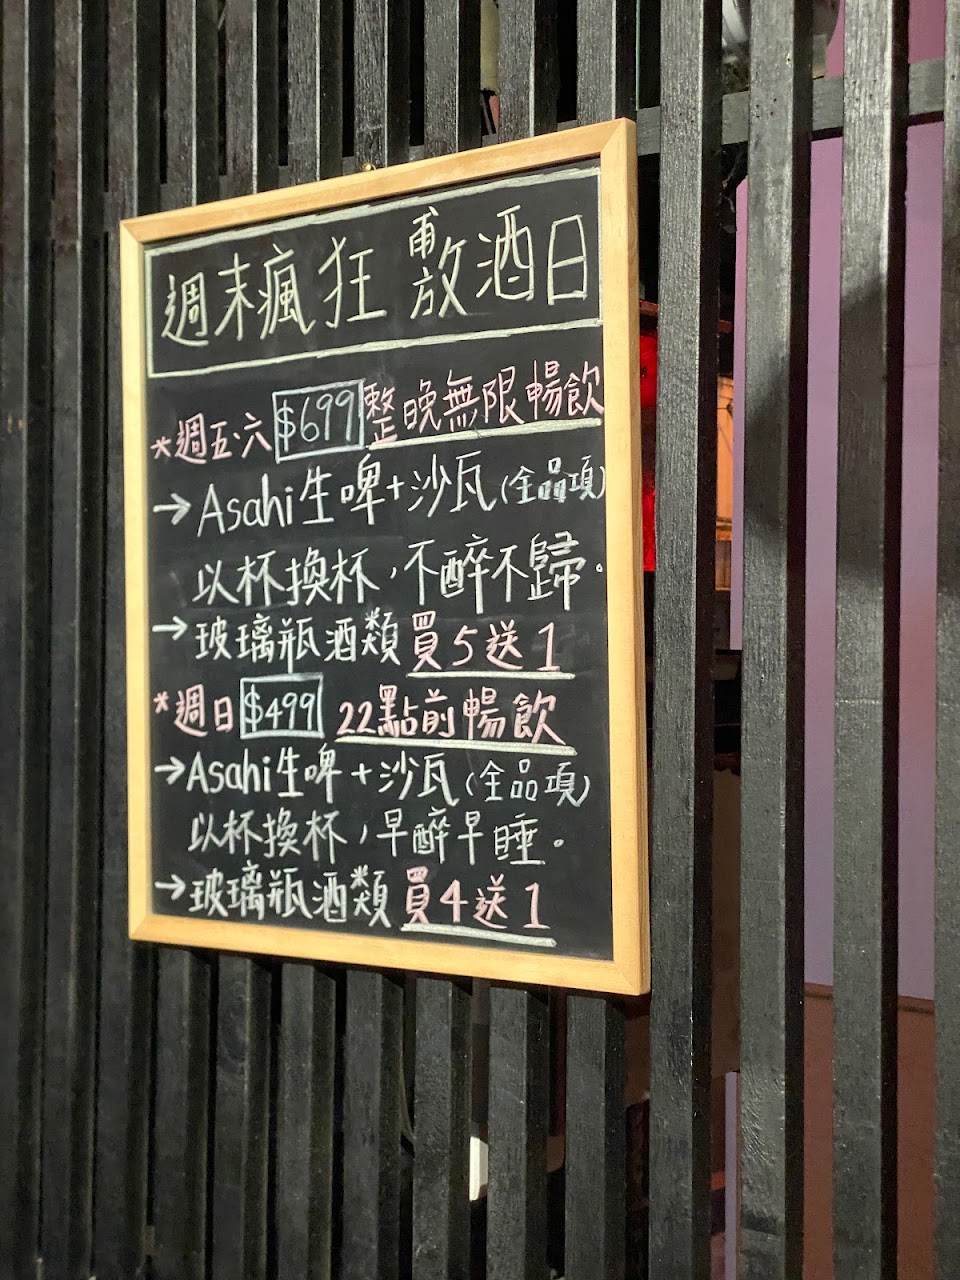 週末瘋狂 甫放酒日
*週五.六 $699 整晚無限暢飲
→Asahi生啤+沙瓦(全品項)
以杯換杯，不醉不歸。
→玻璃瓶酒類 買5送1
*週日 $499 22點前暢飲
→Asahi生啤+沙瓦(全品項)
以杯換杯，早醉早睡。
→玻璃瓶酒類 買4送1